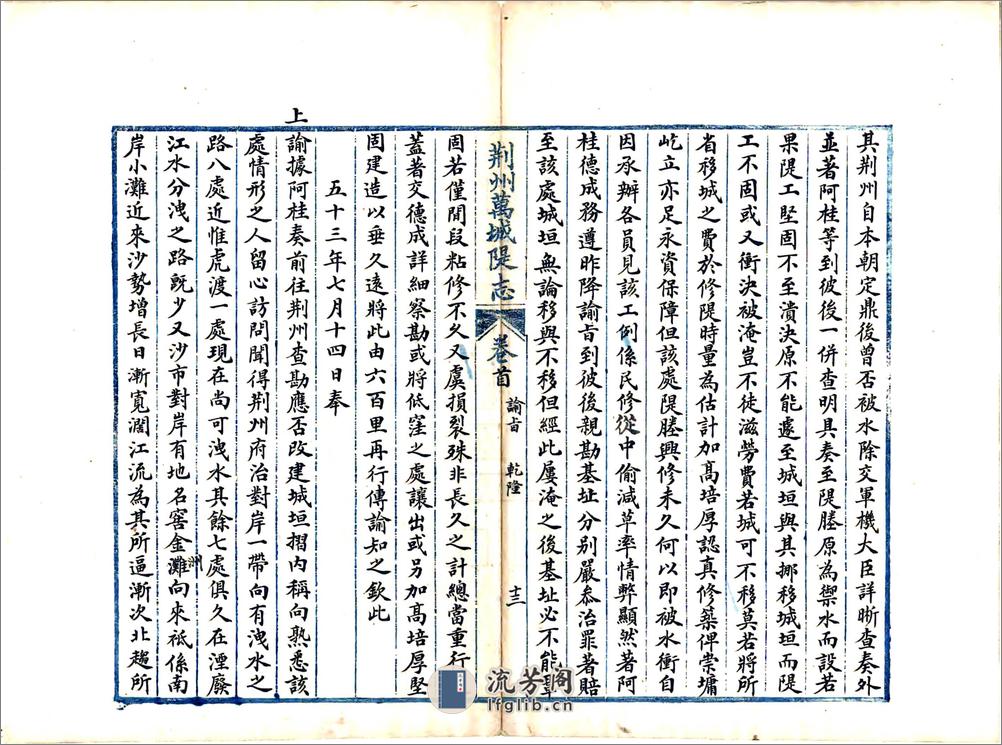 其荆州自本朝定鼎後曾否被水除交軍機大臣詳晰查奏外
並著阿桂等到彼後一併查明具奏至隄塍原為禦水而設若
果隄工堅固不至潰決原不能遽至城垣與其挪移城垣而隄
工不固或又衝決被淹豈不徒滋勞費若城可不移莫若將所
省移城之費於修隄時量為估計加高培厚認真修築俾崇墉
屹立亦足永資保障但該處隄塍興修未久何以即被水衝自
因承辦各員見該工例係民修從中偷減草率情弊顯然著阿
桂德成務遵昨降諭旨到彼後親勘基址分別嚴叅治罪著賠
至該處城垣無論移與不移但經此屢淹之後基址必不能鞏
荆州萬城隄志 卷首 諭旨 乾隆 十三
固若僅間段粘修不久又虞損裂殊非長久之計總當重行
蓋著交德成詳細察勘或將低窪之處讓出或另加高培厚堅
固建造以垂久遠將此由六百里再行傳諭知之欽此
五十三年七月十四日奉
上諭據阿桂奏前往荆州查勘應否改建城垣摺內稱向熟悉該
處情形之人留心訪問聞得荆州府治對岸一帶向有洩水之
路八處近惟虎渡一處現在尚可洩水其餘七處俱久在湮廢
江水分洩之路旣少又沙市對岸有地名窖金灘向來祗係南
洲
岸小灘近來沙勢增長日漸寬濶江流為其所逼漸次北趨所
流芳阁
lfglib.cn